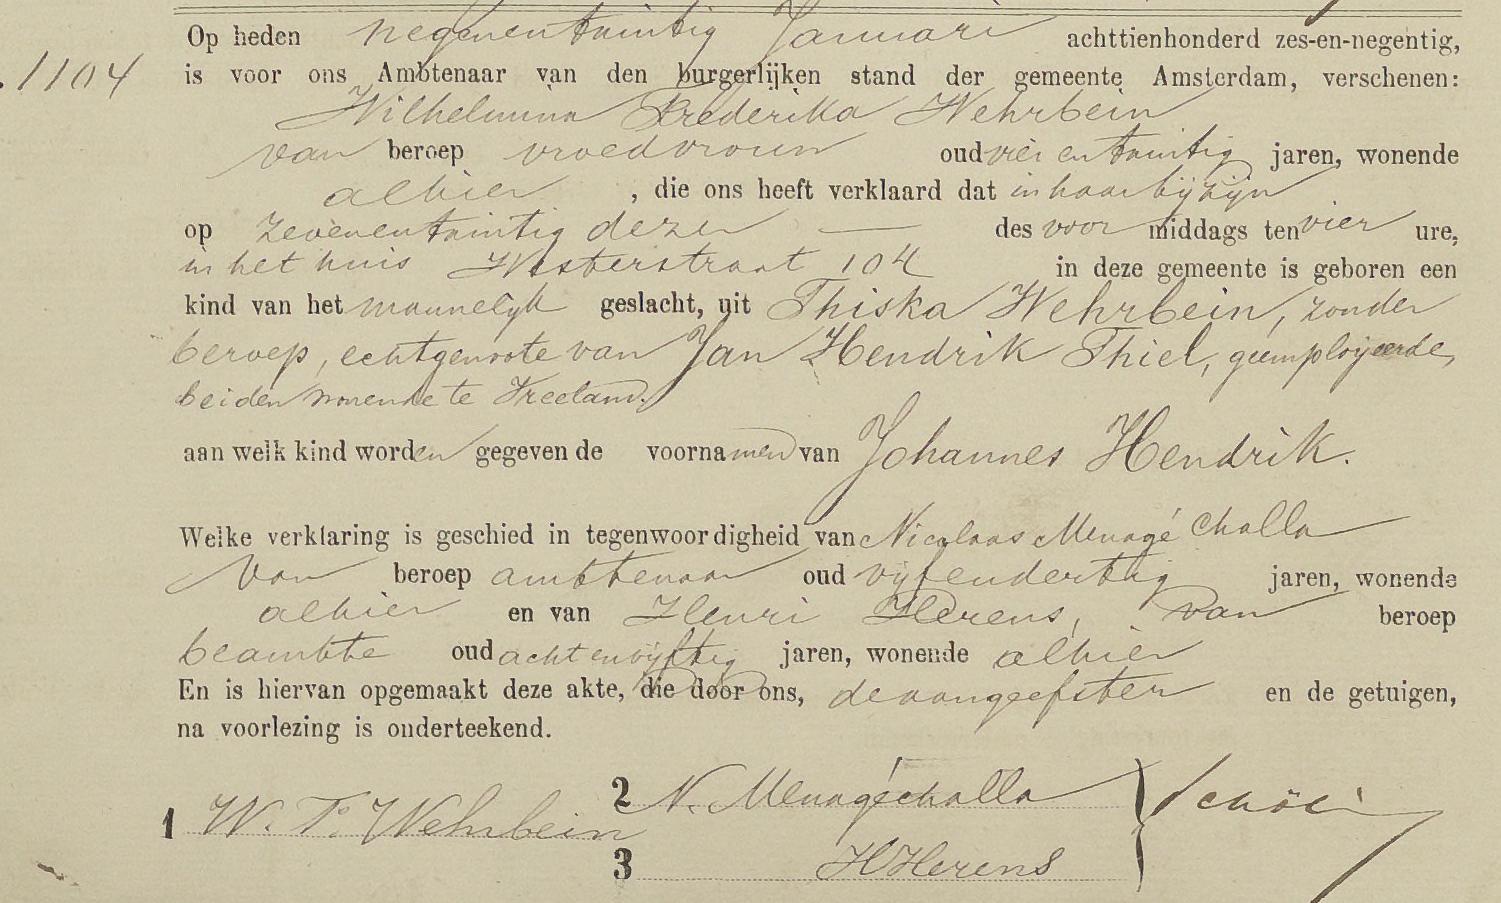 Op heden negenentwintig Januari achttienhonderd zes-en-negentig,
.1104 is voor ons Ambtenaar van den burgerlijken stand der gemeente Amsterdam, verschenen:
Wilhelmina Frederika Wehrbein
van beroep vroedvrouw oud vier en twintig jaren, wonende
alhier , die ons heeft verklaard dat in haar bijzijn
op zevenentwintig dezer — des voor middags ten vier ure,
in het huis Westerstraat 104 in deze gemeente is geboren een
kind van het mannelijk geslacht, uit Thiska Wehrbein, zonder
beroep, echtgenoote van Jan Hendrik Thiel, geemployeerde,
beiden wonende te Vreeland.
aan welk kind worden gegeven de voornamen van Johannes Hendrik.
Welke verklaring is geschied in tegenwoordigheid van Nicolaas Menagé Challa
van beroep ambtenaar oud vijfendertig jaren, wonende
alhier en van Henri Herens, van beroep
beambte oud achtenvijftig jaren, wonende alhier
En is hiervan opgemaakt deze akte, die door ons, de aangeefster en de getuigen,
na voorlezing is onderteekend.
1 W. F. Wehrbein 2 N. Menagéchalla
3 HHerens